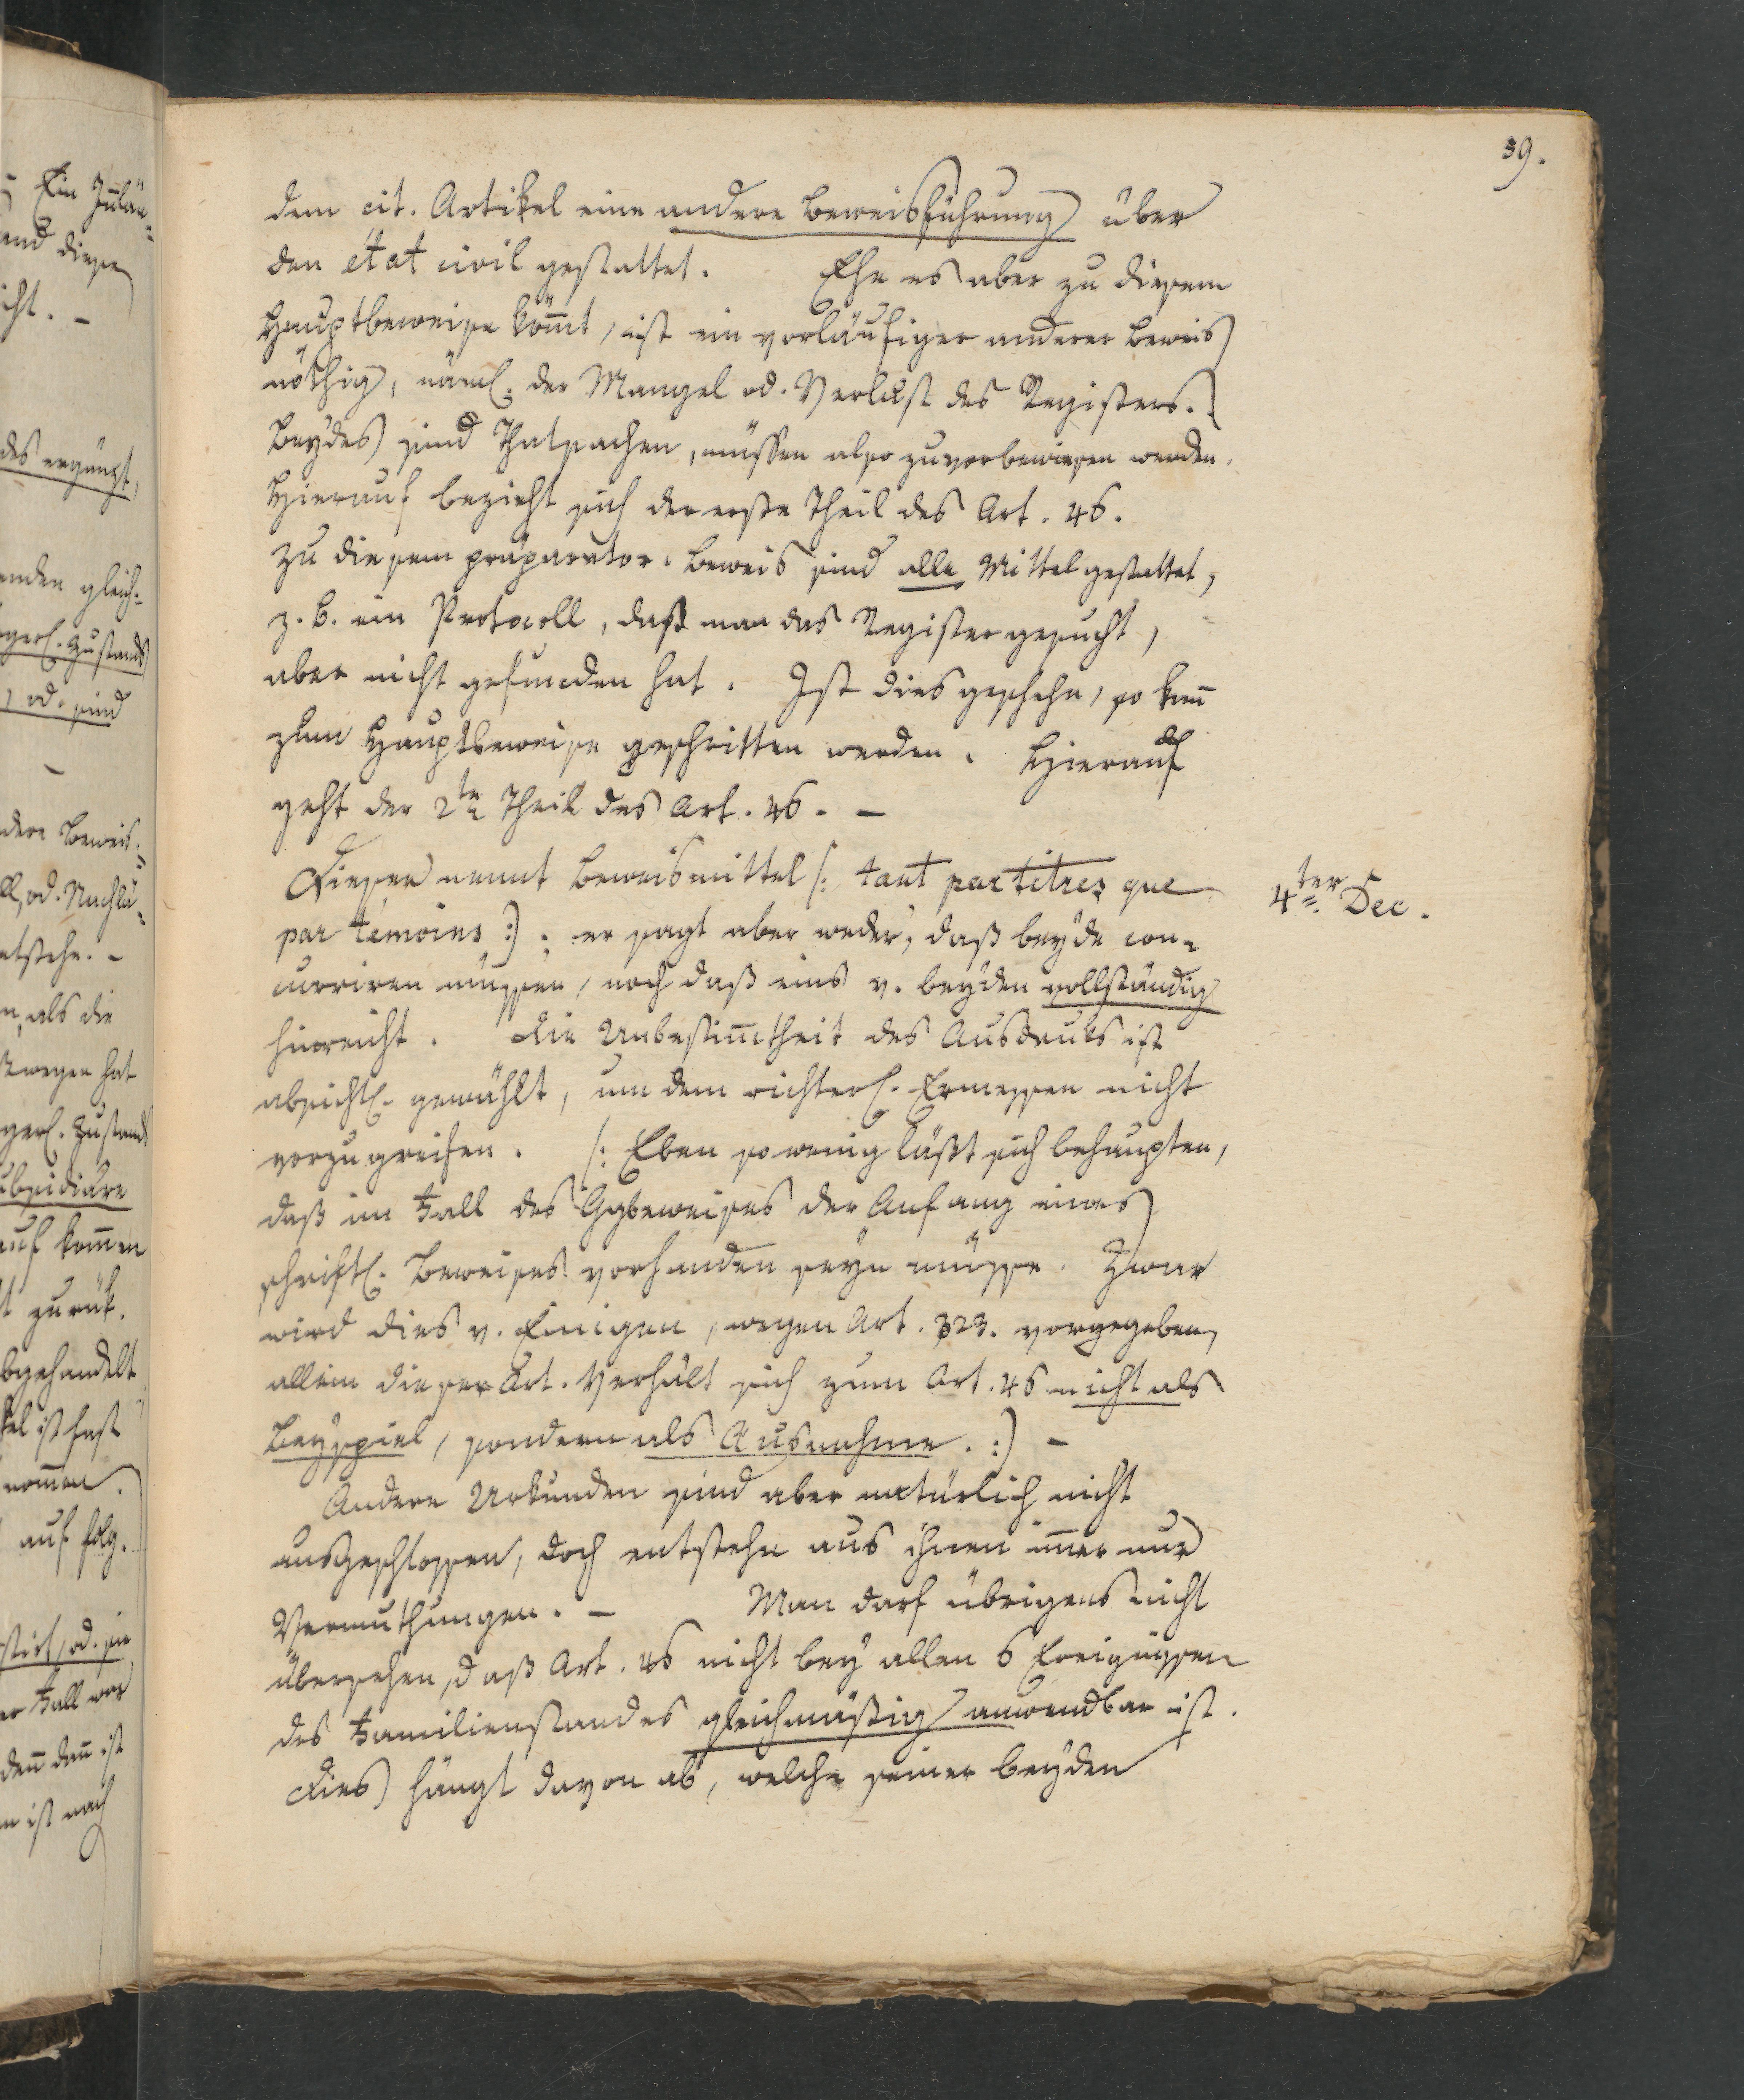 39.
dem cit. Artikel eine andere Beweisführung über
den état civil gestattet. Ehe es aber zu diesem
Hauptbeweise kömt, ist ein vorläufiger anderer Beweis
nöthig, näml. der Mangel od. Verlust des Registers.
Beydes sind Thatsachen, müssen also zuvor bewiesen werden.
Hierauf bezieht sich der erste Theil des Art. 46.
Zu diesem präparator. Beweis sind alle Mittel gestattet,
z. B. ein Protocoll, daß man das Register gesucht,
aber nicht gefunden hat. Ist dies geschehn, so kañ
zum Hauptbeweise geschritten werden. Hierauf
geht der 2te Theil des Art. 46. –
Dieser nennt Beweismittel /: tant par titres que
4ter Dec.
par témoins :/; er sagt aber weder, daß beyde con-
curriren müssen, noch daß eins v. beyden vollständig
hinreicht. Die Unbestim̄theit des Ausdruks ist
absichtl. gewählt, um dem richterl. Ermessen nicht
vorzugreifen. /: Eben so wenig läßt sich behaupten,
daß im Fall des Ggbeweises der Anfang eines
schriftl. Beweises vorhanden seyn müsse. Zwar
wird dies v. Einigen, wegen Art. 323. vorgegeben,
allein dieser Art. verhält sich zum Art. 46 nicht als
Beyspiel, sondern als Ausnahme. :/ –
Andere Urkunden sind aber natürlich nicht
ausgeschlossen, doch entstehn aus ihnen im̄er nur
Vermuthungen. – Man darf übrigens nicht
übersehen, daß Art. 46 nicht bey allen 6 Ereignissen
des Familienstandes gleichmäßig anwendbar ist.
Dies hängt davon ab, welche seiner beyden